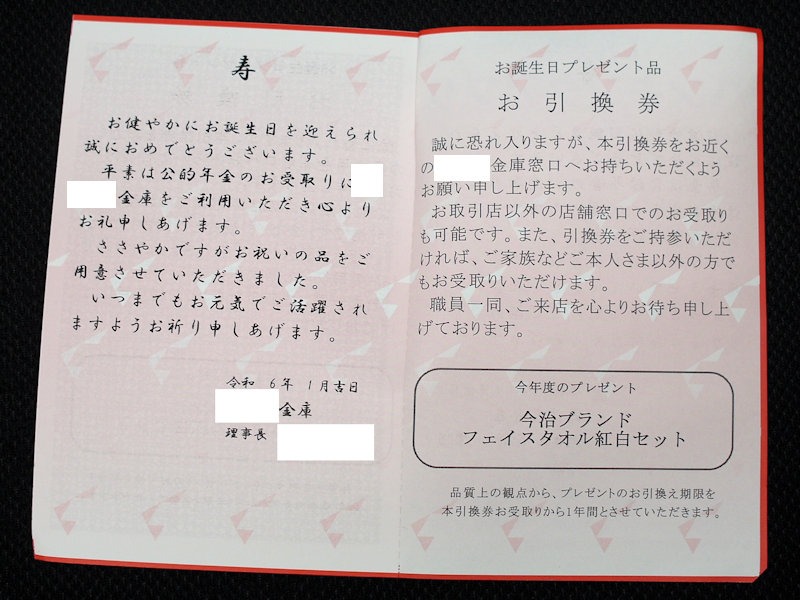 寿
お健やかにお誕生日を迎えられ
誠におめでとうございます。
平素は公的年金のお受取りに
金庫をご利用いただき心より
お礼申しあげます。
ささやかですがお祝いの品をご
用意させていただきました。
いつまでもお元気でご活躍され
ますようお祈り申しあげます。
令和 6年 1月吉日
金庫
理事長
お誕生日プレゼント品
お引換券
誠に恐れ入りますが、本引換券をお近く
の 金庫窓口へお持ちいただくよう
お願い申し上げます。
お取引店以外の店舗窓口でのお受取り
も可能です。また、引換券をご持参いただ
ければ、ご家族などご本人さま以外の方で
もお受取りいただけます。
職員一同、ご来店を心よりお待ち申し上
げております。
今年度のプレゼント
今治ブランド
フェイスタオル紅白セット
品質上の観点から、プレゼントのお引換え期限を
本引換券お受取りから1年間とさせていただきます。